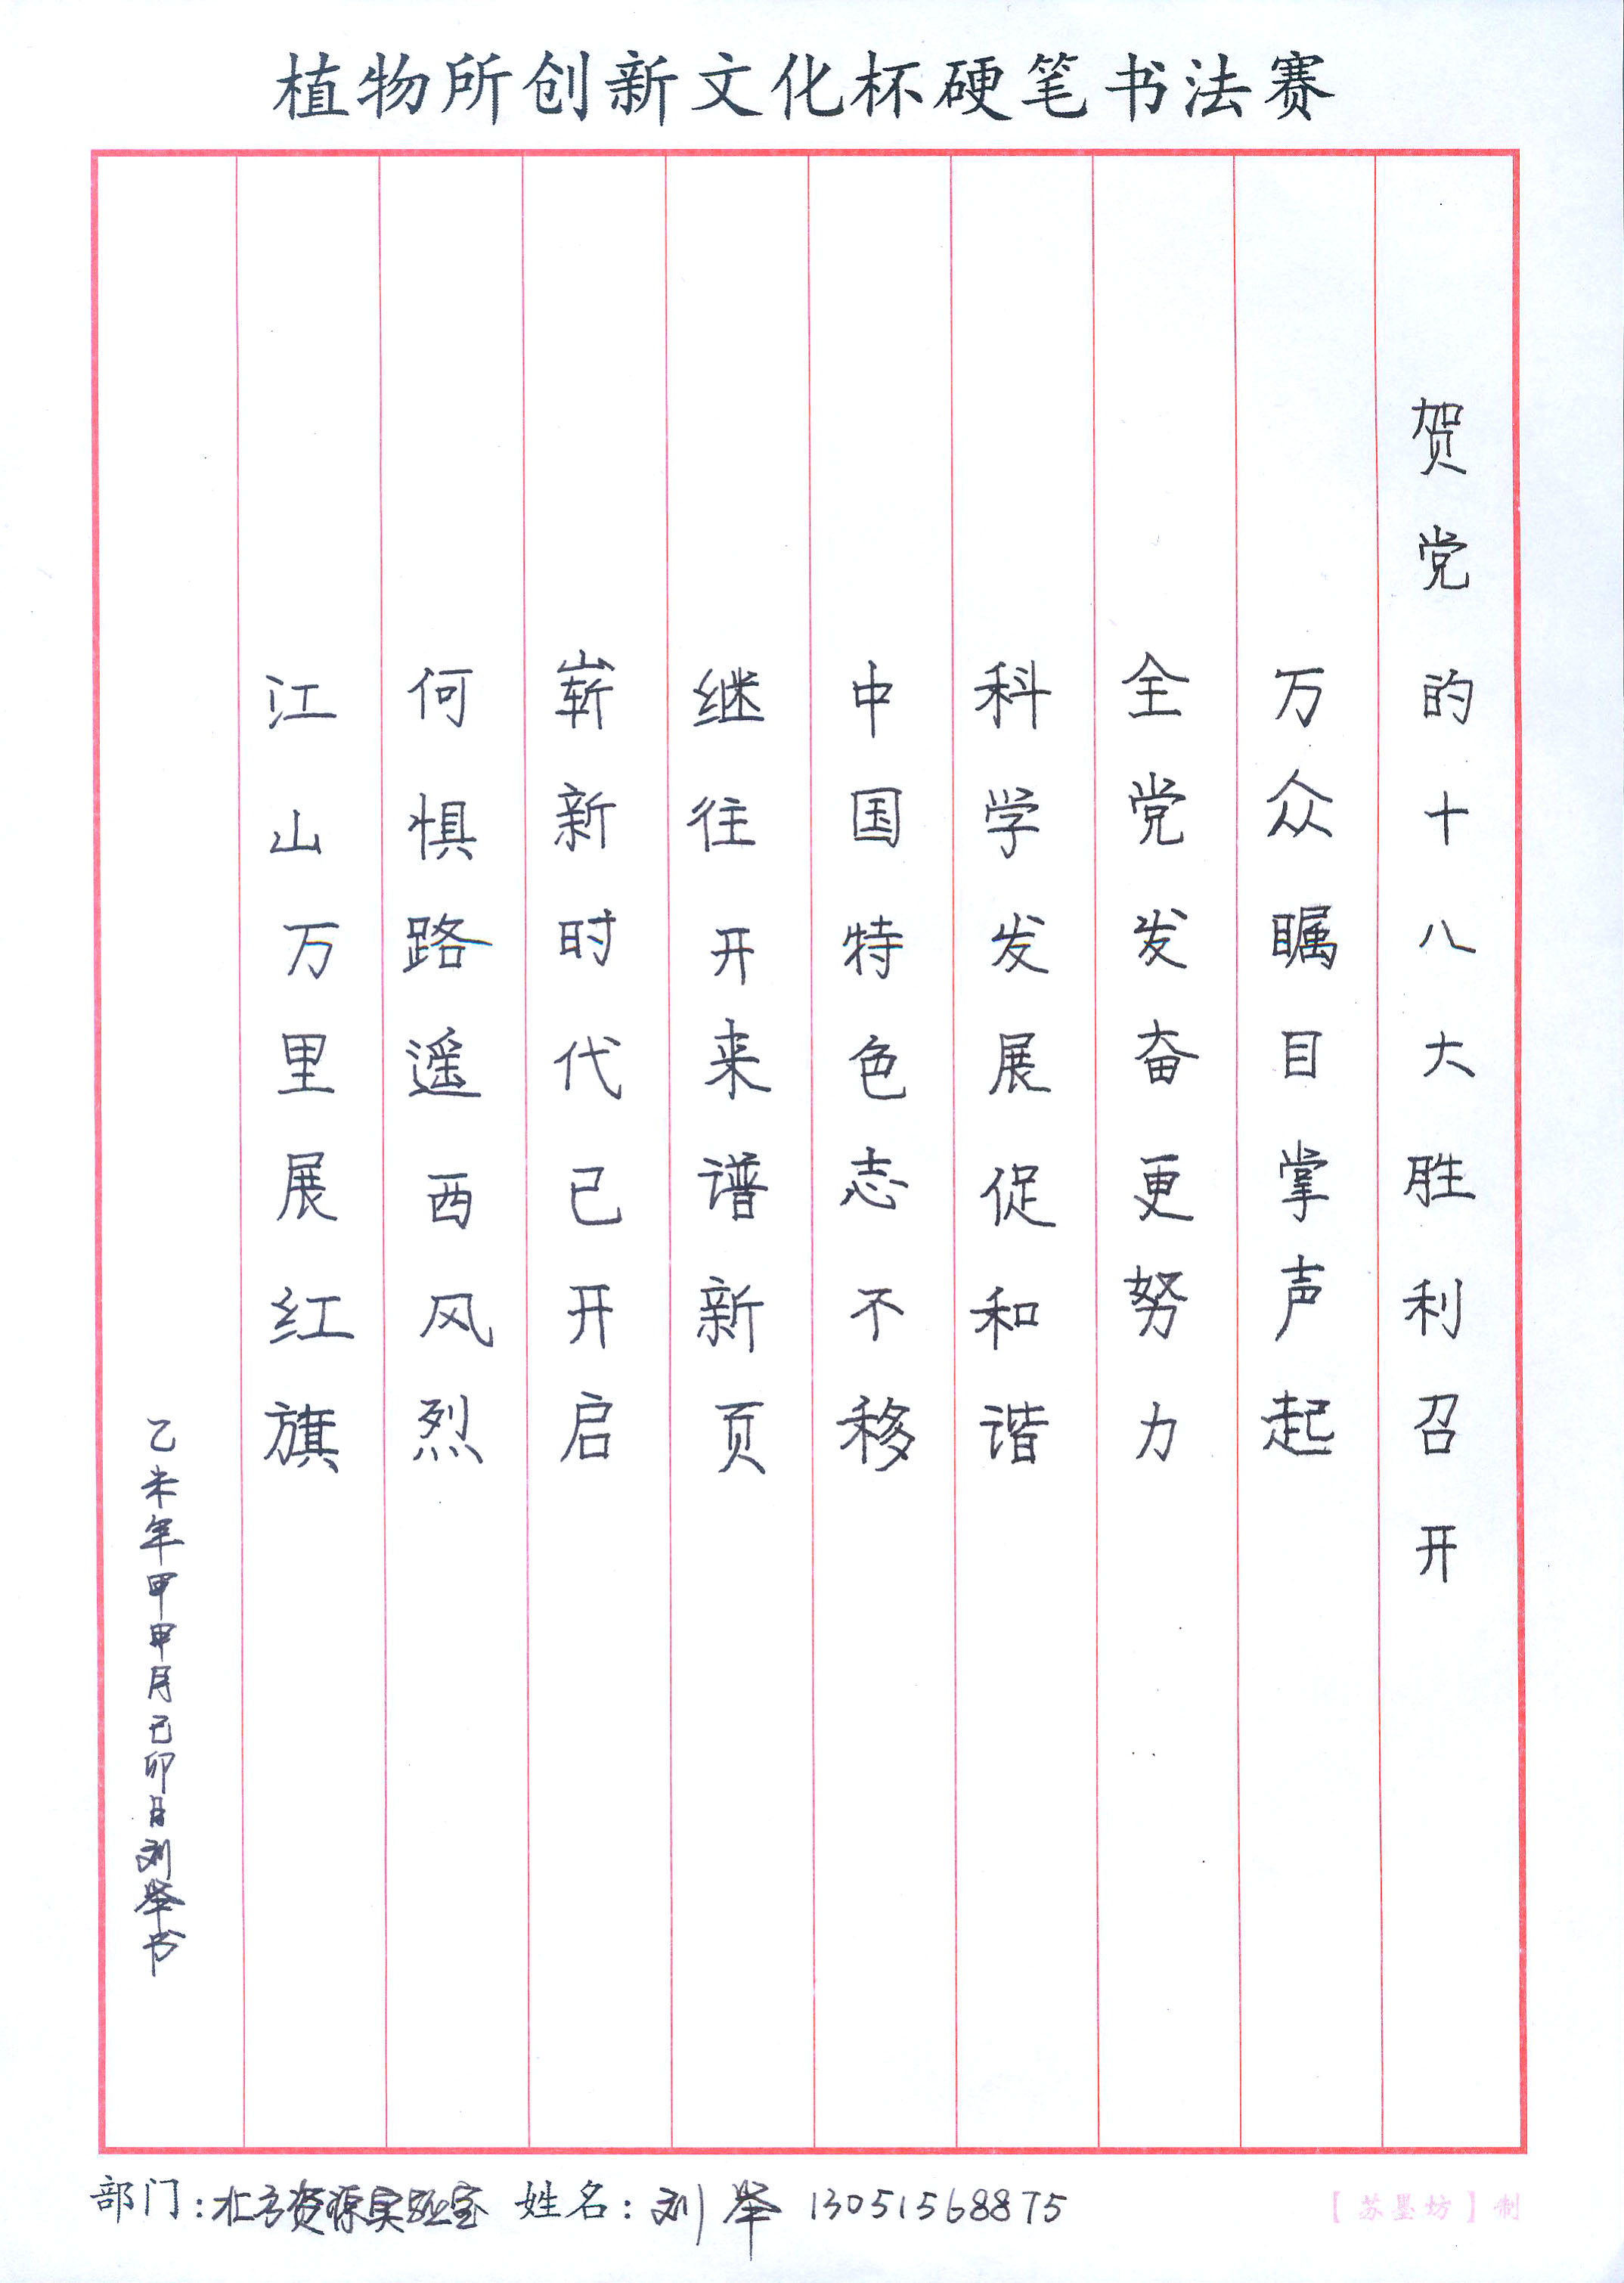 植物所创新文化杯硬笔书法赛
贺党的十八大胜利召开
万众瞩目掌声起
全党发奋更努力
科学发展促和谐
中国特色志不移
继往开来谱新页
崭新时代已开启
何惧路遥西风烈
江山万里展红旗
乙未年甲申月己卯日刘举书
部门:北方资源实验室 姓名:刘举 13051568875
【苏墨坊】制